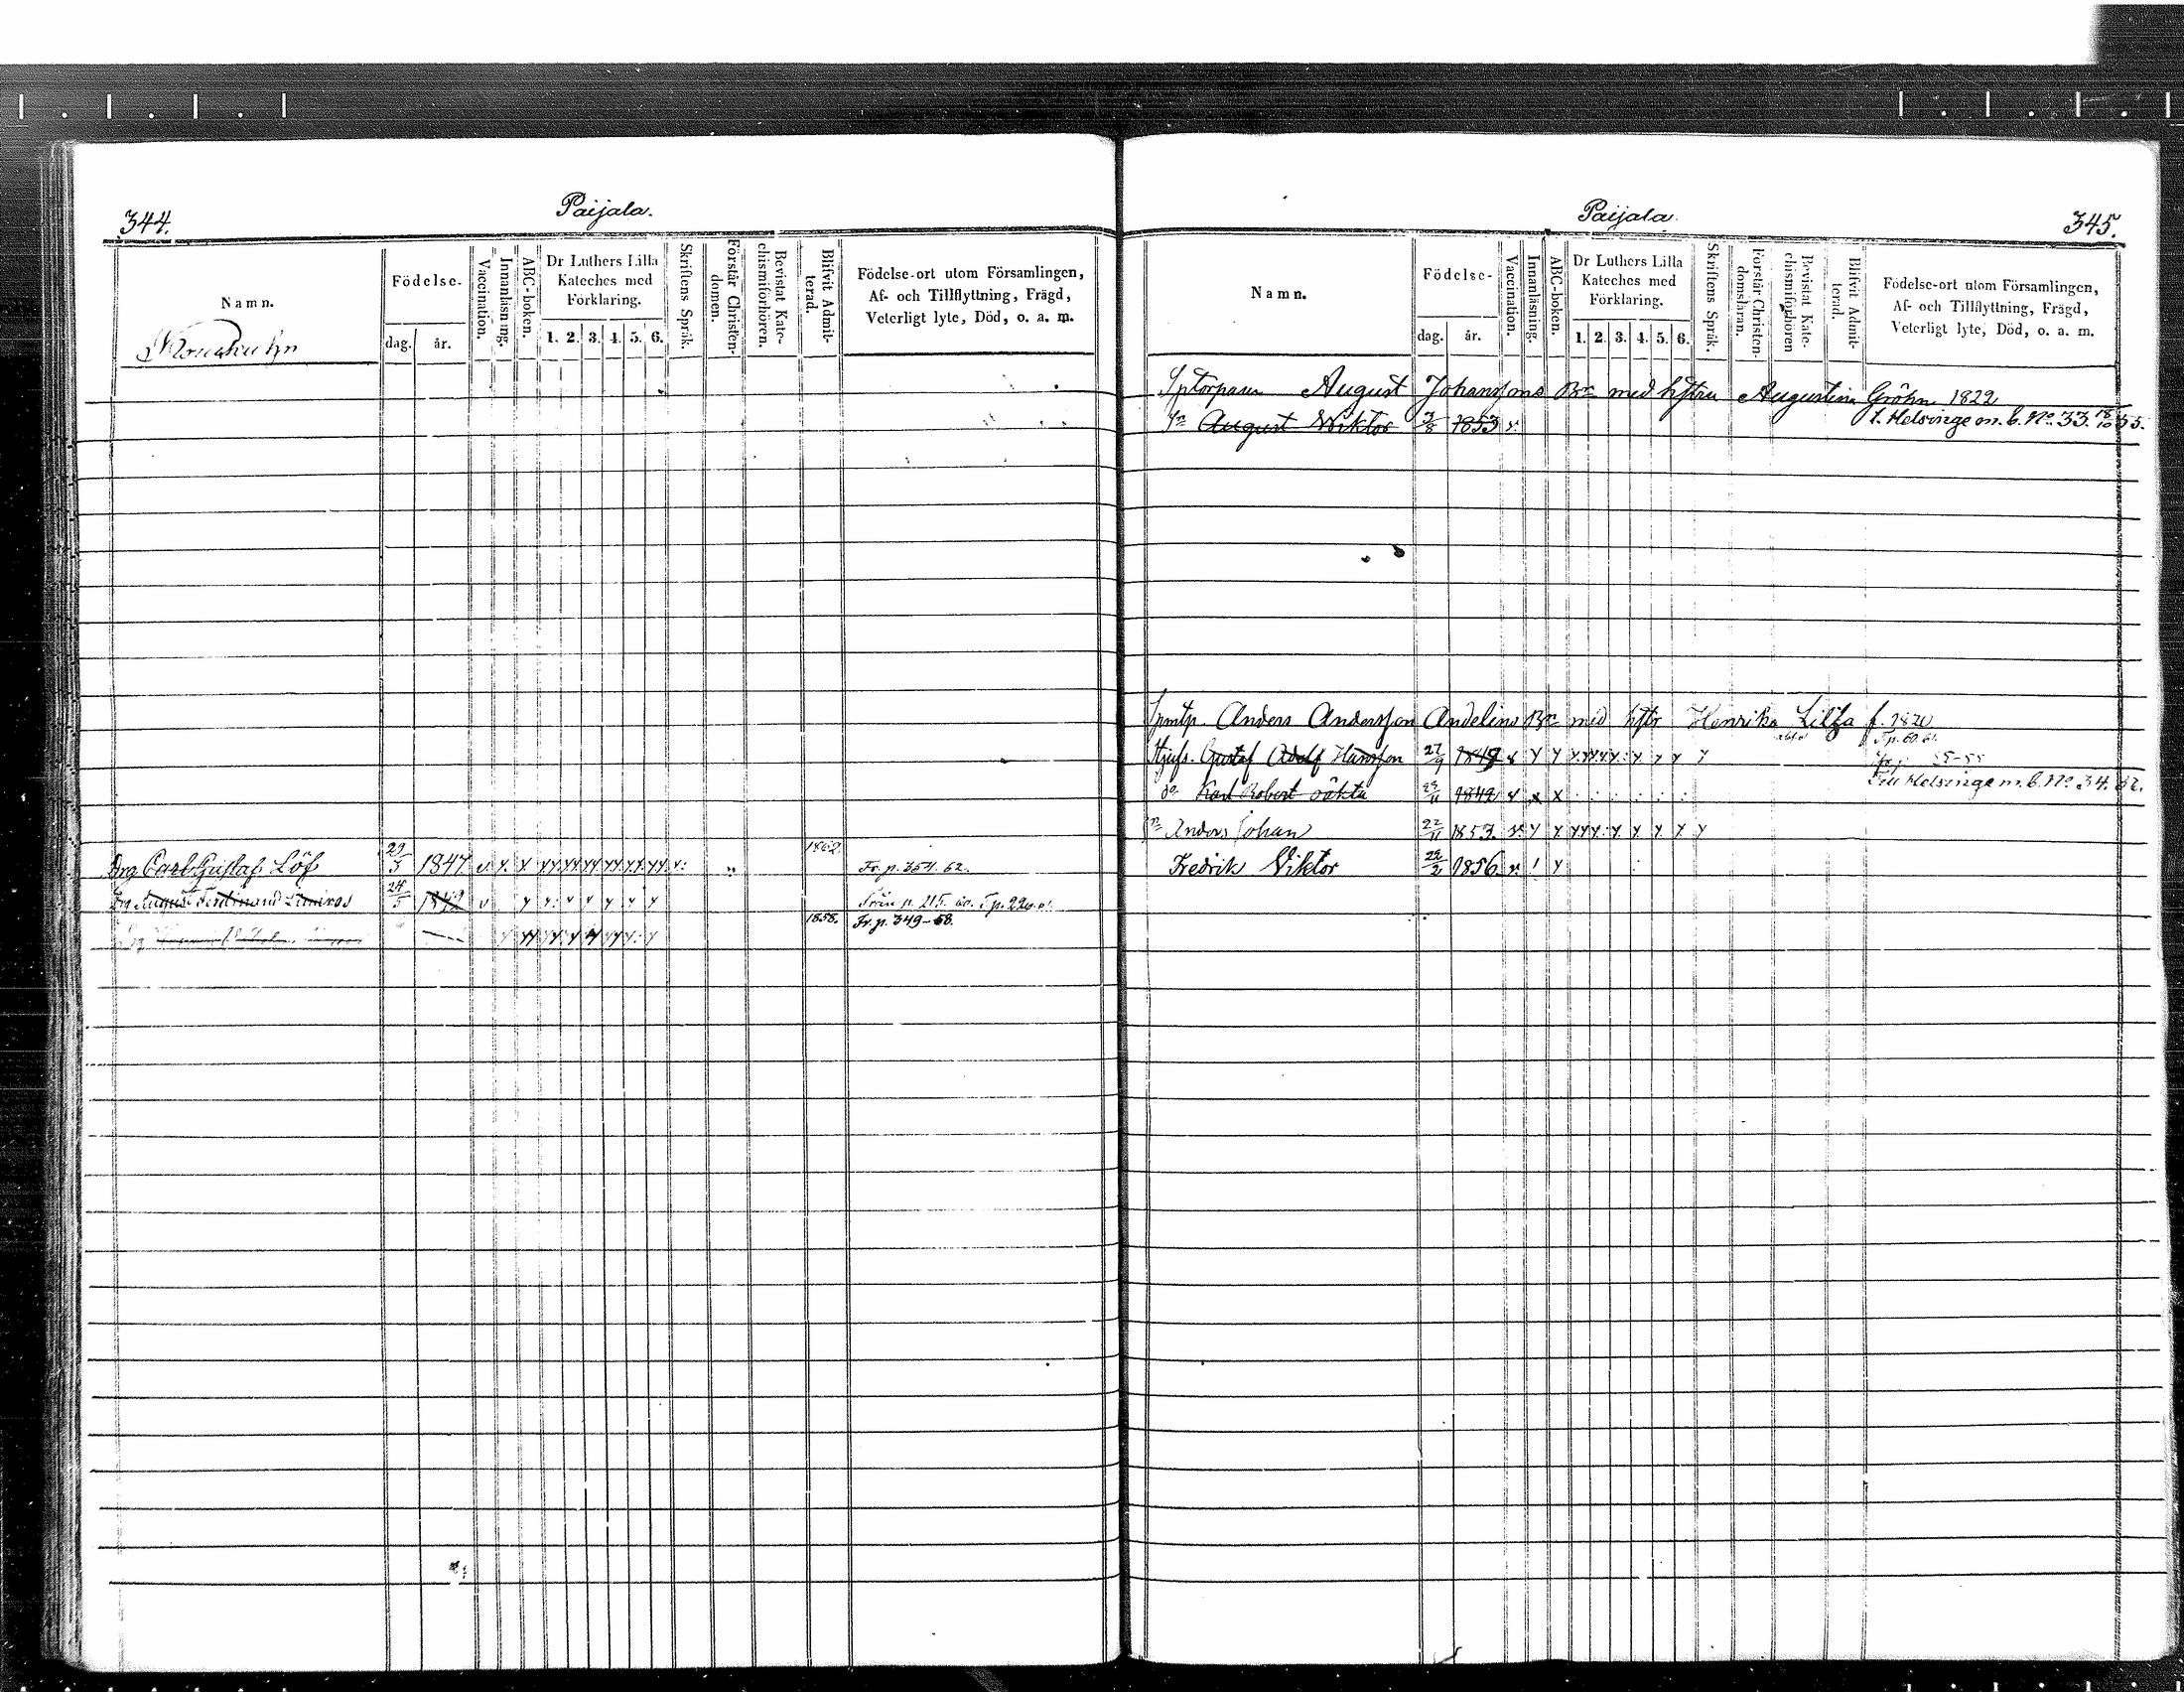 344.
Paijala.
Namn.
Födelse-
dag. år.
Vaccination.
Innanläsning.
ABC-boken.
Dr Luthers Lilla
Kateches med
Förklaring.
1. 2. 3. 4. 5. 6.
Skriftens Språk.
Förstår Christen-
domen.
Bevistat Kate-
chismiförhören.
Blifvit Admit-
terad.
Födelse-ort utom Församlingen,
Af- och Tillflyttning, Frägd,
Veterligt lyte, Död, o. a. m.
1862
Drg Carl Gustaf Löf 29/3 1847 Fr. p. 354. 62.
Drg August Ferdinand 24/5 1842 Från p. 215. T p. 220
1858. Fr. p. 349-58.
Paijala.
345.
Namn.
Födelse-
dag. år.
Vaccination.
Innanläsning.
ABC-boken.
Dr Luthers Lilla
Kateches med
Förklaring.
1. 2. 3. 4. 5. 6.
Skriftens Språk.
Förstår Christen-
domsläran.
Bevistat Kate-
chismiförhören
Blifvit Admit-
terad.
Födelse-ort utom Församlingen,
Af- och Tillflyttning, Frägd,
Veterligt lyte, Död, o. a. m.
Sptorparen August Johanssons Bn med hstru Augustina Gröhn 1822
Sn August Wiktor 3/8 1853 v. t. Helsinge m. b. No. 33. 18/10 55.
Anders Andersson Andelins Bn med hstr Henrika Lilja f. 1820
T p. 60. 61.
Stjufs. Gustaf Adolf Hansson 27/9 1847 55-55
do Karl Robert 1842 Till Helsinge m. b. No. 34. 62.
Sn Anders Johan 22/11 1853.
Fredrik Viktor 28/2 1856.